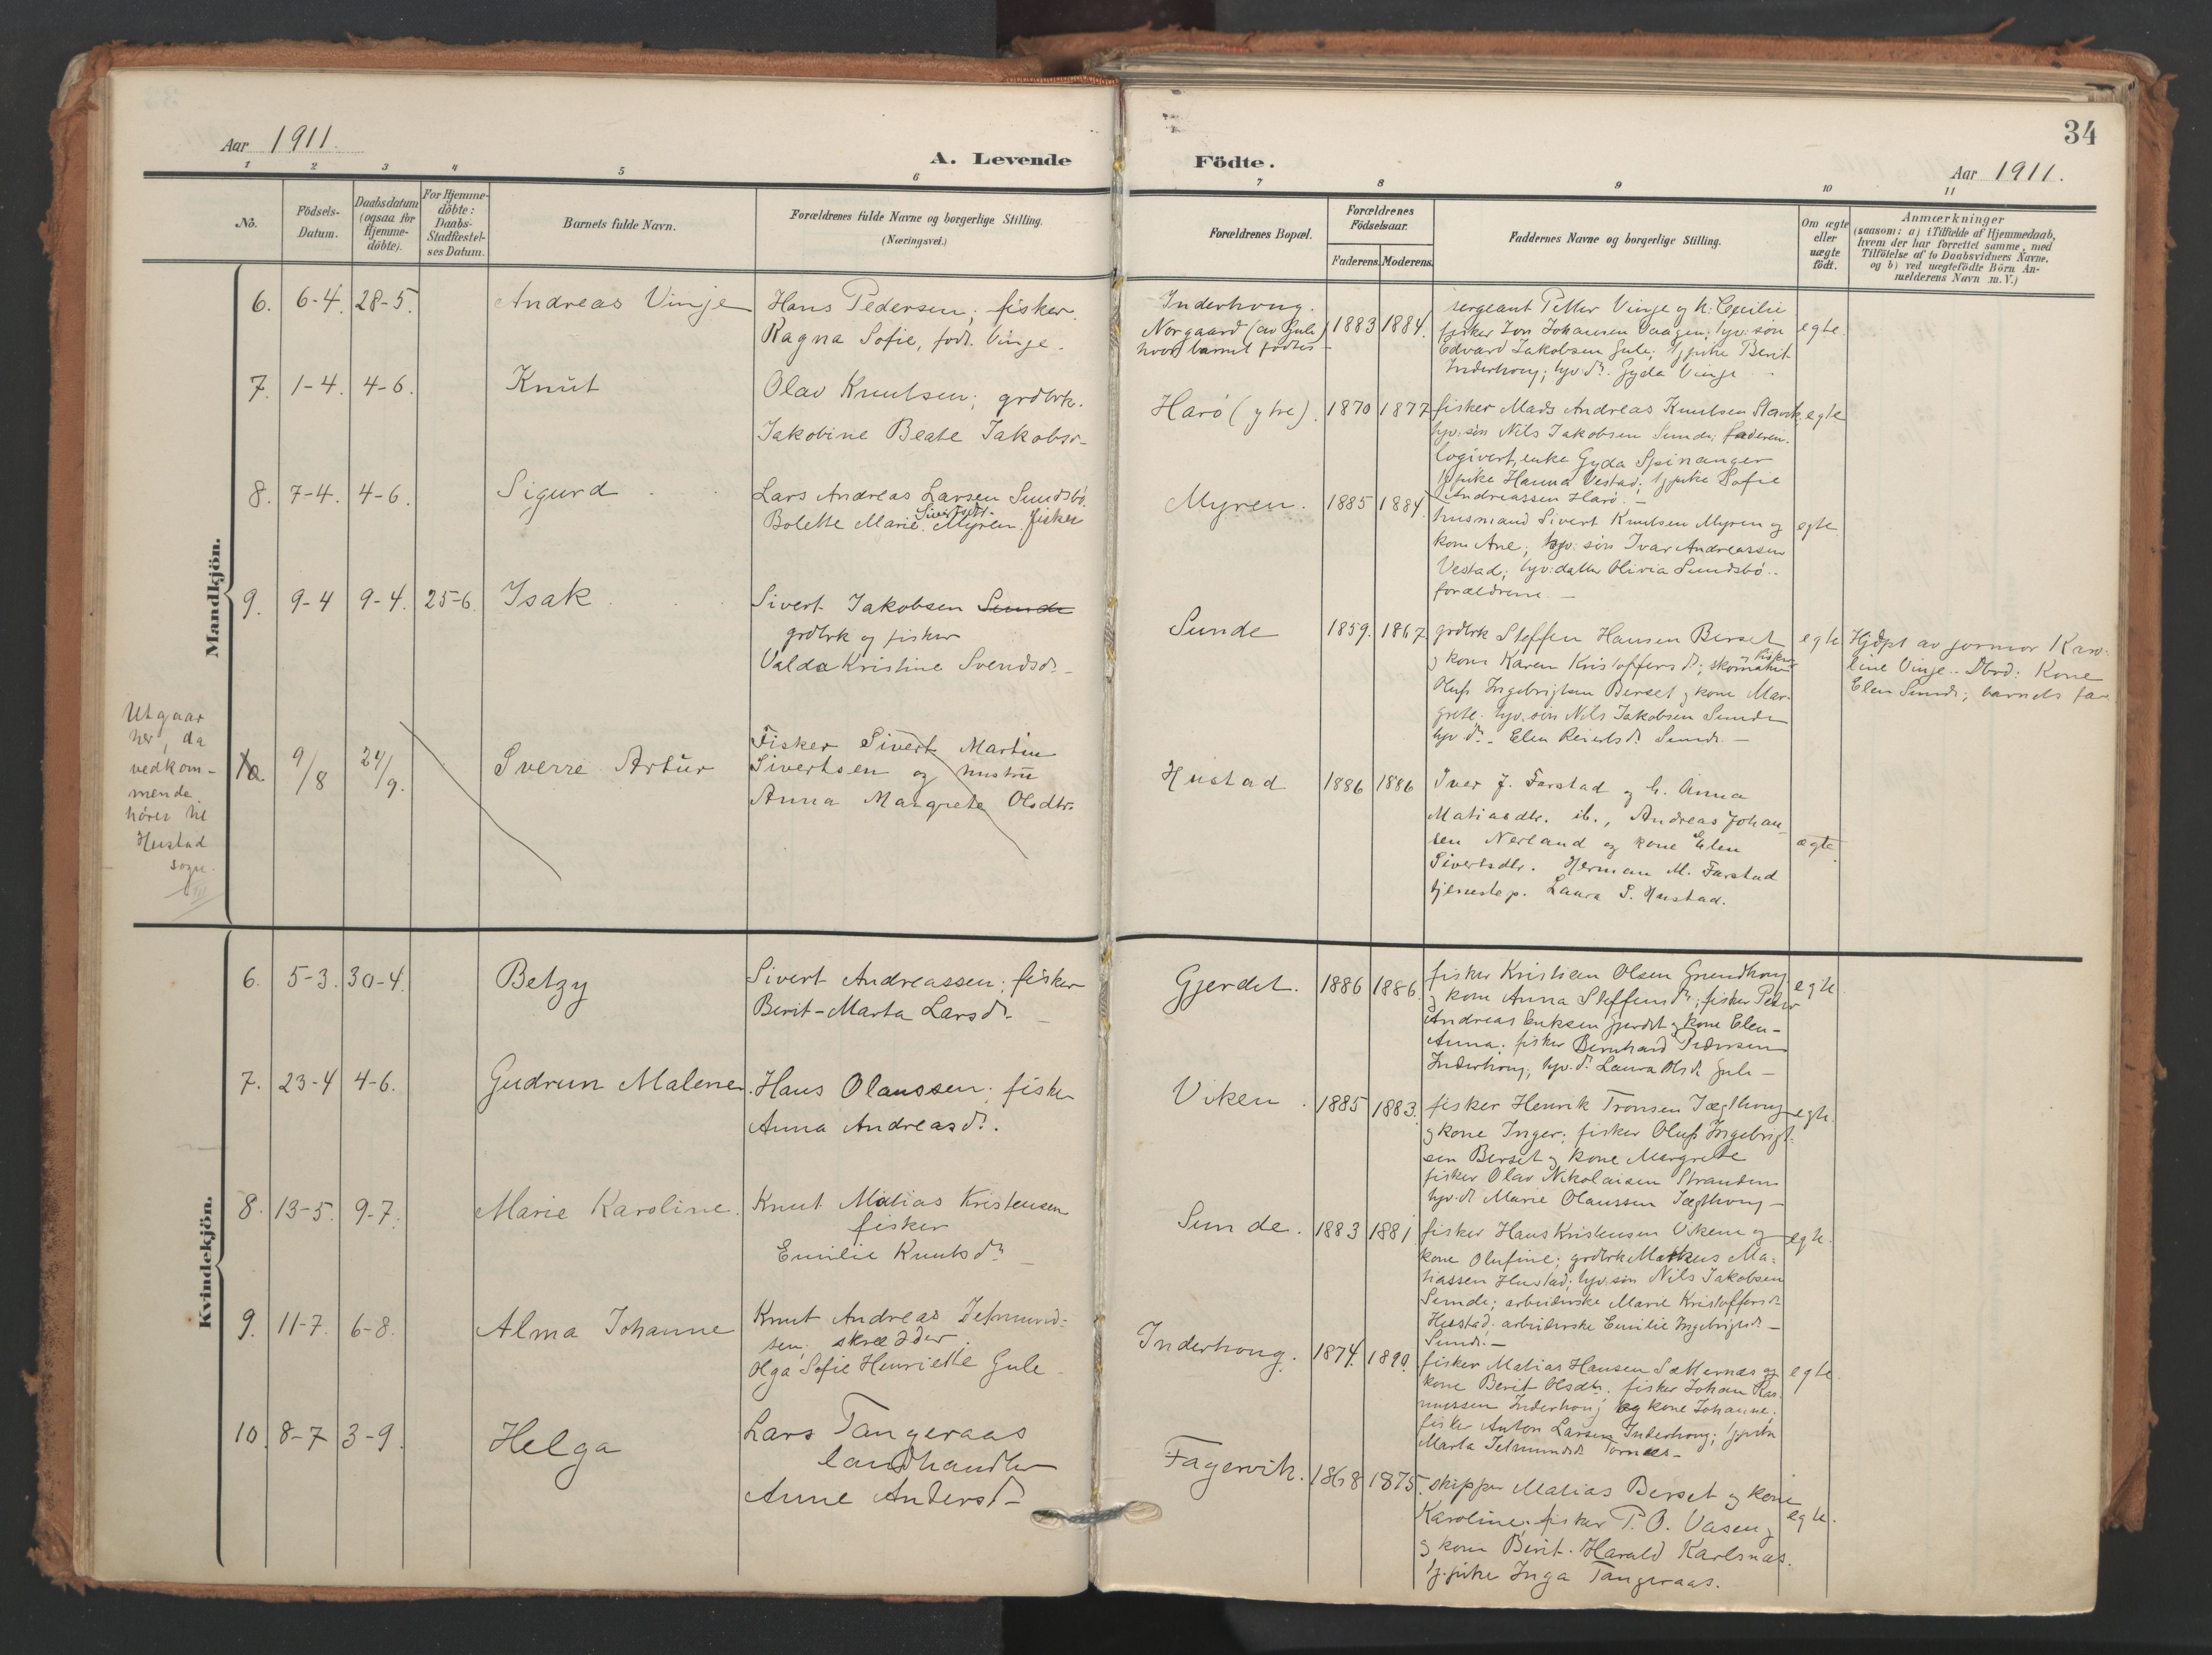 Aar 1911.
A. Levende
Födte.
34
Aar 1911.
1 2 3 4 5 6 7 8 9 10 11
No.
Födsels-
Datum.
Daabsdatum
(ogsaa for
Hjemme-
döbte).
For Hjemme-
döbte:
Daabs-
Stadfestel-
ses Datum.
Barnets fulde Navn.
Forældrenes fulde Navne og borgerlige Stilling.
(Næringsvei.)
Forældrenes Bopæl.
Forældrenes
Födselsaar.
Faderens. Moderens.
Faddernes Navne og borgerlige Stilling.
Om ægte
eller
uægte
födt.
Anmærkninger
(saasom: a) i Tilfælde af Hjemmedaab,
hvem der har forrettet samme, med
Tilföielse af to Daabsvidners Navne.
og b) ved uægtefödte Börn An-
melderens Navn m.V.)
Mandkjön.
6. 6-4. 28-5. Andreas Vinje
Hans Pedersen; fisker.
Ragna Sofie, født Vinje.
Inderhoug.
Norgaard (av Gule)
hvor barnet fødtes
1883 1884.
sergeant Petter Vinje og h. Cecilie
fisker Jon Johansen Vaagen; hjv: søn
Edvard Jakobsen Gule; pike Berit
Inderhoug; hjv. dr. Gyda Vinje
egte.
7. 1-4. 4-6. Knut
Olav Knutsen; grdbrk.
Jakobine Beate Jakobsd.
Harö (ytre). 1870 1877
fisker Mads Andreas Knutsen Stavik;
hjv. søn Nils Jakobsen Sunde; faderen.
logivert, enke Gyda Spinanger
pike Hanna Vestad; pike Sofie
Andreassen Harö.
egte
8. 7-4. 4-6. Sigurd
Lars Andreas Larsen Sundsbö.
Sivertsdt.
Bolette Marie Myren. fisker
Myren. 1885 1884.
husmand Sivert Knutsen Myren og
kone Ane; hjv: søn Ivar Andreassen
Vestad; hjv: datter Olivia Sundsbö.
forældrene.
egte
9. 9-4 9-4. 25-6. Isak
Sivert Jakobsen Sunde
grdbrk og fisker
Valda Kristine Svendsd.
Sunde 1859. 1867
grdbrk Steffen Hansen Berset
og kone Karen Kristoffersd; skomaker
og fisker
Oluf Ingebrigtsen Berset og kone Mar-
grete. hjv. søn Nils Jakobsen Sunde
hjv dr. Elen Reiertsd. Sunde.
egte.
Hjdpt av jormor Karo-
line Vinje. Dbvd: Kone
Elen Sunde; barnets far
Utgaar
her, da
vedkom-
mende
hører til
Hustad
sogn.
10. 9/8 24/9. Sverre Artur
Fisker Sivert Martin
Sivertsen og hustru
Anna Margrete Olsdtr.
Hustad 1886 1886
Iver J. Farstad og h. Anna
Matiasdtr. ib., Andreas Johan-
sen Nerland og kone Elen
Sivertsdtr. Herman M. Farstad
tjenestep. Laura S. Hustad.
ægte.
Kvindekjön.
6. 5-3. 30-4. Betzy
Sivert Andreassen; fisker
Berit-Marta Larsdr.
Gjerdet. 1886 1886.
fisker Kristian Olsen Grundhoug
og kone Anna Steffensdr; fisker Peder
Andreas Eriksen Gjerdet og kone Elen-
Anna; fisker Bernhard Pedersen
Inderhoug; hjv. dr. Laura Olsdr Gule
egte.
7. 23-4 4-6. Gudrun Malene.
Hans Olaussen; fisker
Anna Andreasdr.
Viken. 1885 1883.
fisker Henrik Tronsen Jægthoug
og kone Inger; fisker Oluf Ingebrigt-
sen Berset og kone Margrete
fisker Olav Nikolaisen Stranden
hjv. dr Marie Olaussen Jægthoug
egte.
8. 13-5. 9-7. Marie Karoline.
Knut Matias Kristensen
fisker
Emilie Knutsdr.
Sunde. 1883 1881
fisker Hans Kristensen Viken og
kone Olufine; grdbrk Markus Ma-
tiassen Hustad; hjv. søn Nils Jakobsen
Sunde; arbeiderske Marie Kristoffersdr
Hustad; arbeiderske Emilie Ingebrigtsdr
Sunde.
egte.
9. 11-7. 6-8. Alma Johanne
Knut Andreas Jetmund-
sen; skrædder.
Olga Sofie Henriette Gule
Inderhoug. 1874. 1890.
fisker Matias Hansen Sætternæs og
kone Berit Olsdtr. fisker Johan Ras-
mussen Inderhoug og kone Johanne;
fisker Anton Larsen Inderhoug; pike
Marta Jetmundsd. Tornæs
egte.
10. 8-7 3-9. Helga
Lars Tangeraas
landhandler
Anne Andersd.
Fagervik. 1868 1875.
skipper Matias Berset og kone
Karoline; fisker P. O. Vasen
og kone Berit. Harald Karlsnæs.
pike Inga Tangeraas.
egte.